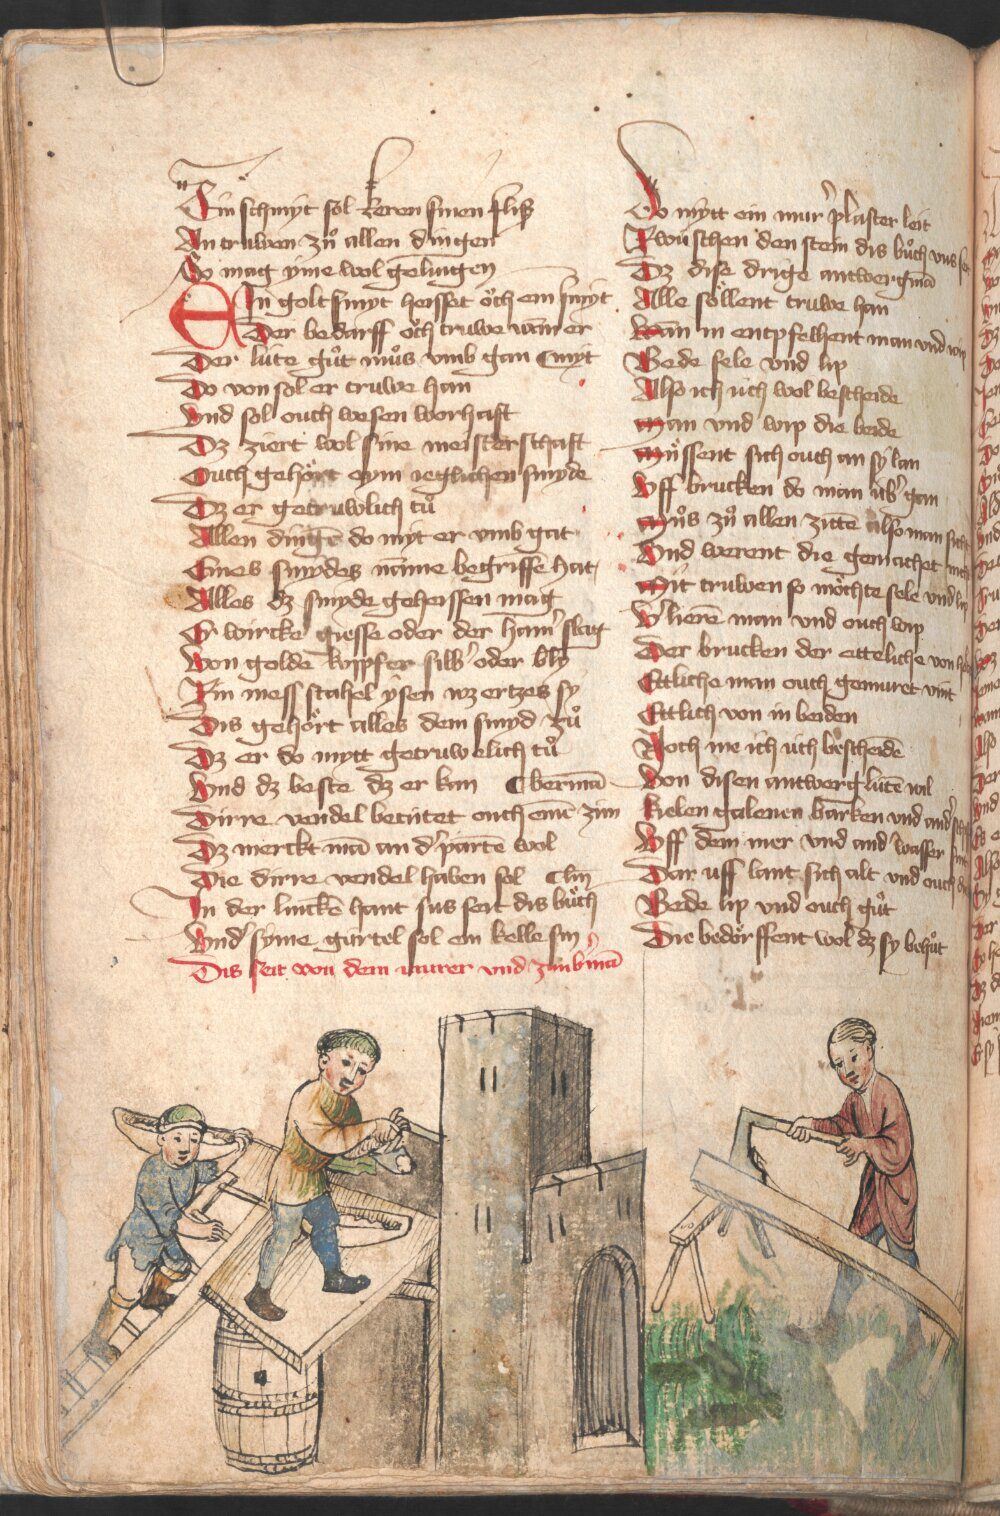 Ein schmyt sol keren sinen fliß
An truwen zuͦ allen dingen
So mag yme wol gelingen
EIn golt smyt heisset oͤch ein smyt
Der bedarff oͤch truwe wān er
Der lúte guͦt muͦs vmb gan myt
Do von sol er truwe han
Vnd sol ouch wesen worhaft
Dz ziert wol sine meisterschaft
Ouch gehoͤrt eym ieglichen smyde
Dz er getruwlich tuͦ
Allen dingē do myt er vmb gat
Eines smydes name begriffē hat
Alles dz smyde geheissen mag
Er wircke giesse oder der ham̄ slag
Von golde kuppfer silb' oder bly
Ein mess stahel ysen wz ertzes sy
Dis gehoͤrt alles dem smyd zuͦ
Dz er do mytt getruwelich tuͦ
Vnd dz beste dz er kan bermā
Dirre vendel betútet ouch einē zim
Dz merckt mā an d' partē wol
Die dirre vendel haben sol
In der linckē hant sus seit dis buͦch
Vnd' syme gúrtel sol ein kelle sin
Dis seit von dem murer vnd zimb'mā
Do mytt ein mur' plaster leit
Zwúschen den stein dis buͦch vns seit
Dz dise drige antwergmā
Alle soͤllent truwe han
Wān in entpfelhent man vnd wip
Bede sele vnd lip
Also ich úch wol bescheide
Man vnd wip die beide
Muͤssent sich ouch an sy lan
Vff brucken do man úb' gan
Muͦs zuͦ allen zitē also man sicht
Vnd werent die gemachet nicht
Mit truwen so moͤchte sele vnd lip
V'lierē man vnd ouch wip
Der brucken der etteliche von
Ettliche man ouch gemuret vint
Ettlich von in beiden
Noch me ich úch bescheidē
Von disen antwerglútē wil
Kielen galenen barken vnd and'
Vff dem mer vnd and' wasser
Dar uff lant sich alt vnd ouch
Bede lip vnd ouch guͦt
Die bedoͤrffent wol dz sy behuͦt